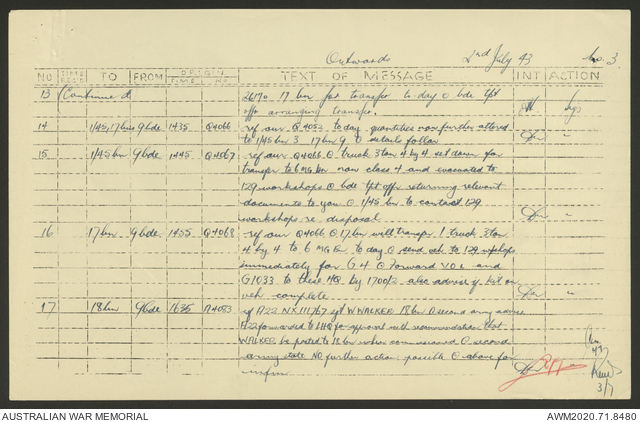 Outwards 2nd July 43 No. 3.
NO TIME RECD TO FROM ORIGIN TIME NO. TEXT OF MESSAGE INT ACTION
13 (Continued) 17 bn for transfer to day @ bde tpt
offr arranging transfer.
14 1/45, 17 bns 9 bde 1435 Q4066 ref our Q4053 to day quantities now further altered
to 1/45 bn 3 17 bn 9 @ details follow
15 1/45 bn 9 bde 1445 Q4067 ref our Q4066 @ truck 3 ton 4 by 4 set down for
transfer to 6 MG Bn now class 4 and evacuated to
129 workshops @ bde tpt offr returning relevant
documents to you @ 1/45 bn to contact 129
workshops re disposal
16 17 bn 9 bde 1455 Q4068 ref our Q4066 @ 17 bn will transfer 1 truck 3 ton
4 by 4 to 6 MG Bn to day @ send veh to 129 wkshops
immediately for G4 @ Forward VOL and
G1033 to these HQ by 1700/2 also advise if kit on
veh complete
17 18 bn 9 bde 1635 A4083 ref A22 NX111767 sgt W WALKER 18 bn @ second army advise
A22 forwarded to LHQ for approval with recommendation that
WALKER be posted to 18 bn when commissioned @ second
army state NO further action possible @ above for
infm
3/7
AUSTRALIAN WAR MEMORIAL AWM2020.71.8480